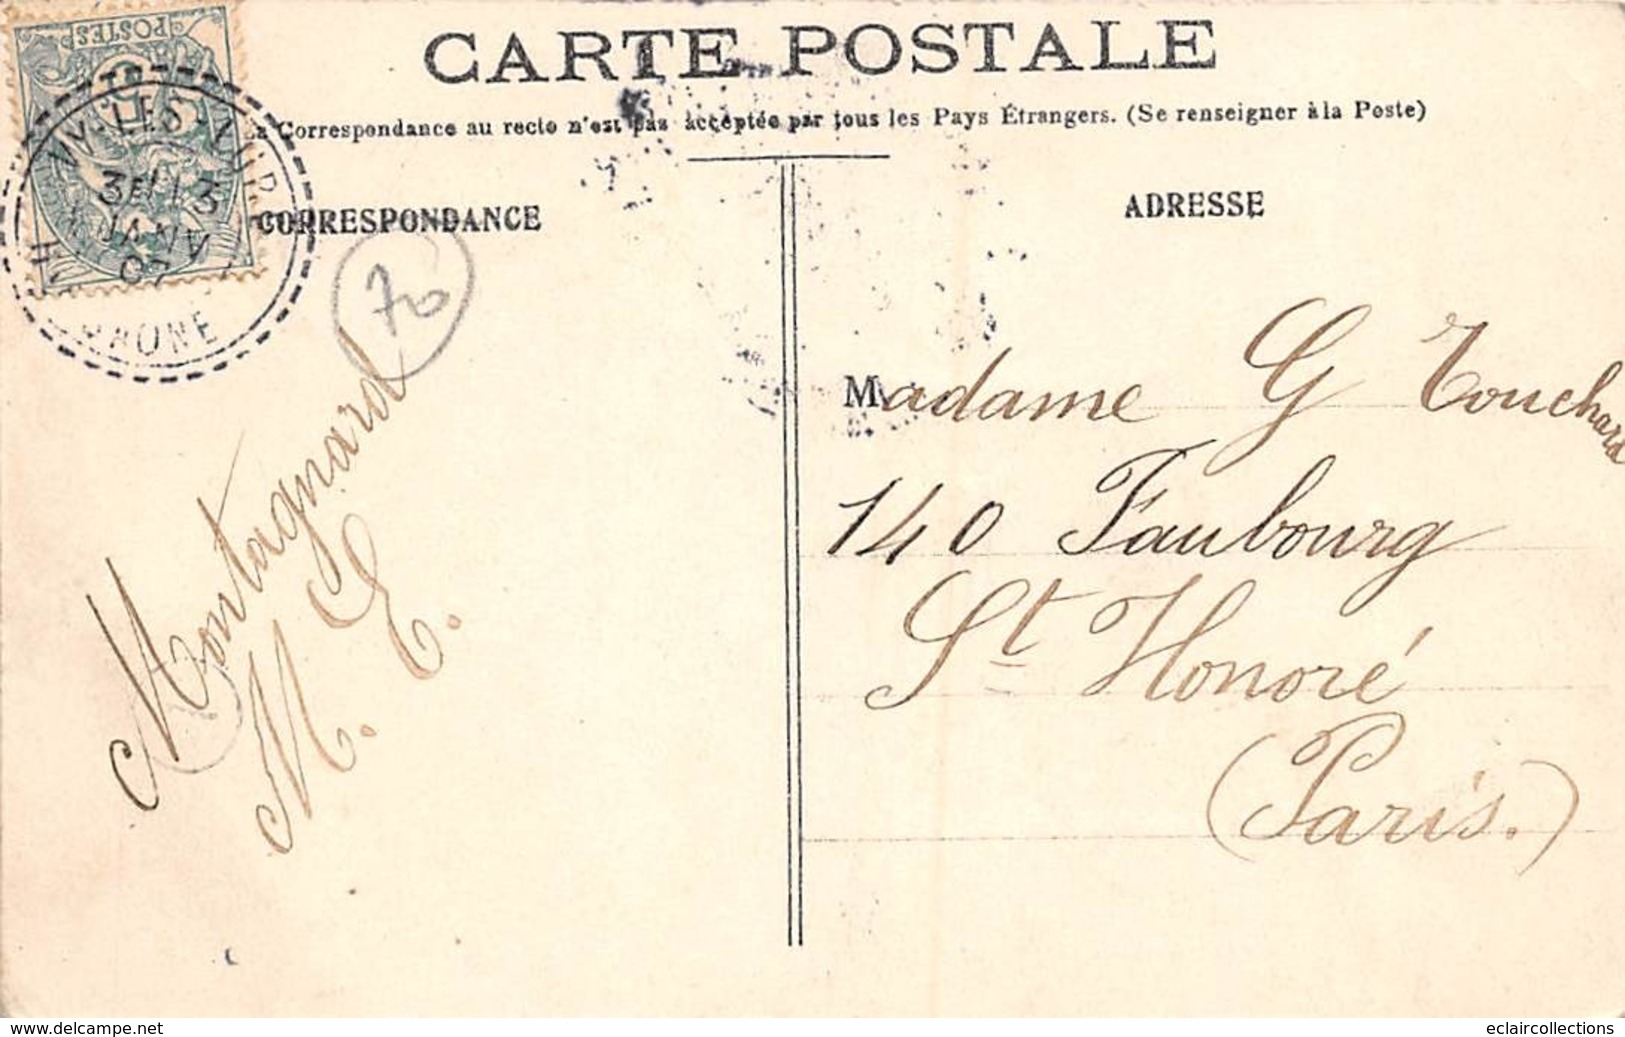 POSTES
5
VY-LES-LURE
3E 13
JANV
07
HTE SAONE
CARTE POSTALE
a Correspondance au recto n'est pas acceptée par tous les Pays Étrangers. (Se renseigner à la Poste)
CORRESPONDANCE
ADRESSE
70
Montagnard
M. E.
Madame G Touchard
140 Faubourg
St Honoré
(Paris.)
www.delcampe.net
eclaircollections